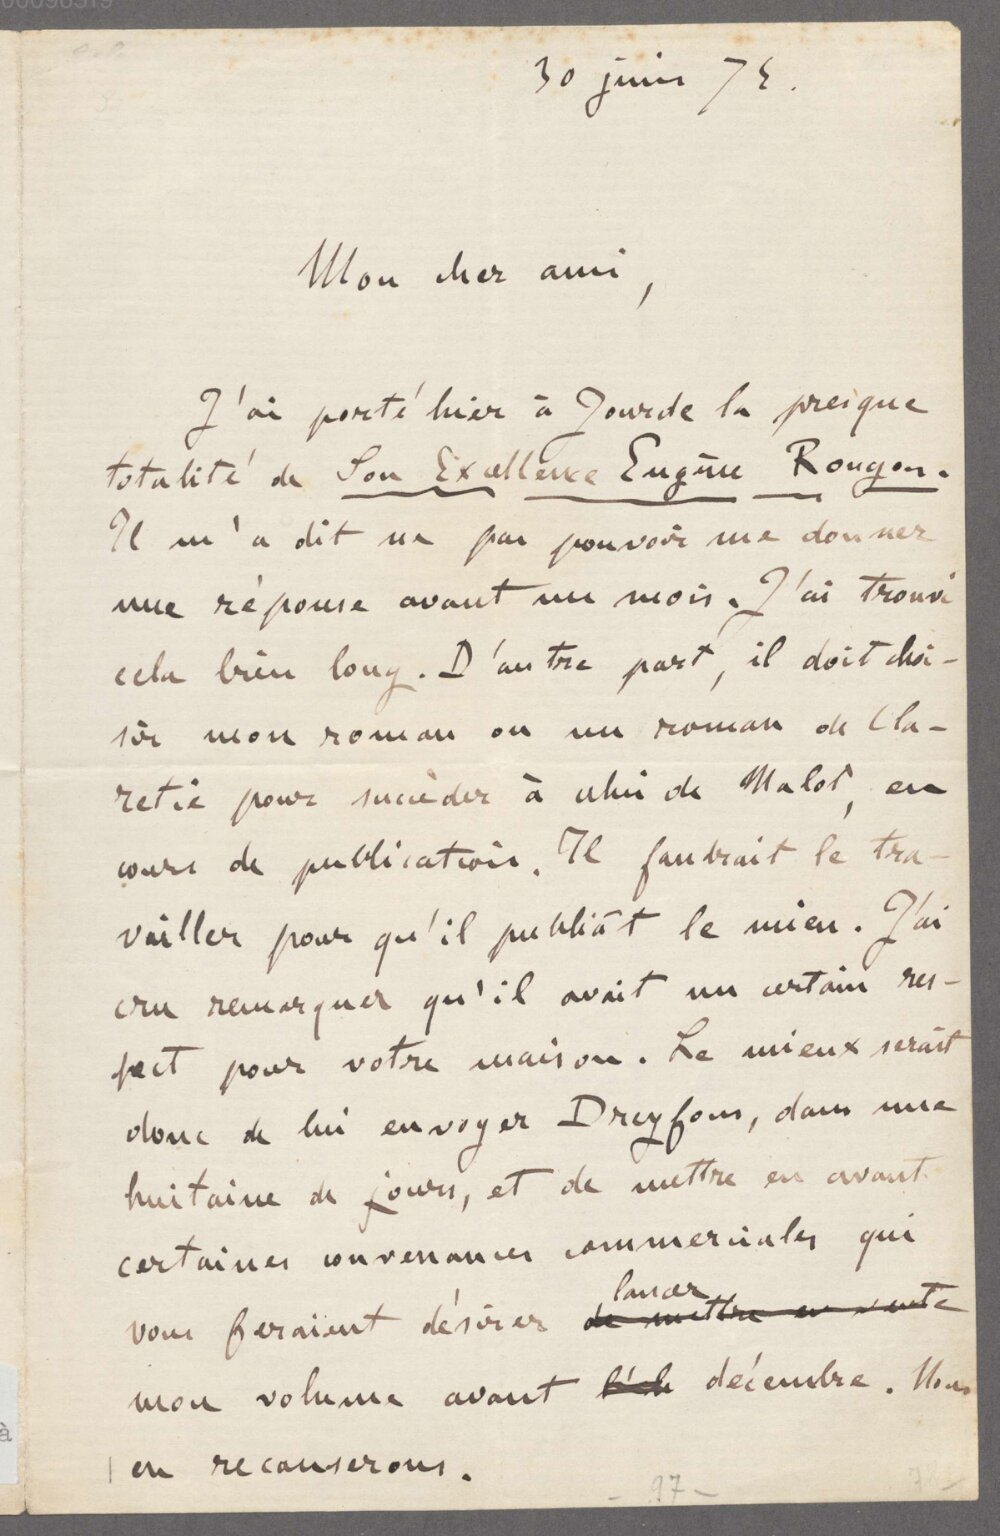 30 juin 75.
Mon cher ami,
J'ai porté hier à Jourde la presque
totalité de Son Excellence Eugène Rougon.
Il m'a dit ne pas pouvoir me donner
une réponse avant un mois. J'ai trouvé
cela bien long. D'autre part, il doit choi-
sir mon roman ou un roman de Cla-
retie pour succèder à celui de Malot, en
cours de publication. Il faudrait le tra-
vailler pour qu'il publiât le mien. J'ai
cru remarquer qu'il avait un certain res-
pect pour votre maison. Le mieux serait
donc de lui envoyer Dreyfous, dans une
huitaine de jours, et de mettre en avant
certaines convenances commerciales qui
vous feraient désirer de mettre en vente lancer
mon volume avant décembre. Nous
en recauserons.
- 97 -